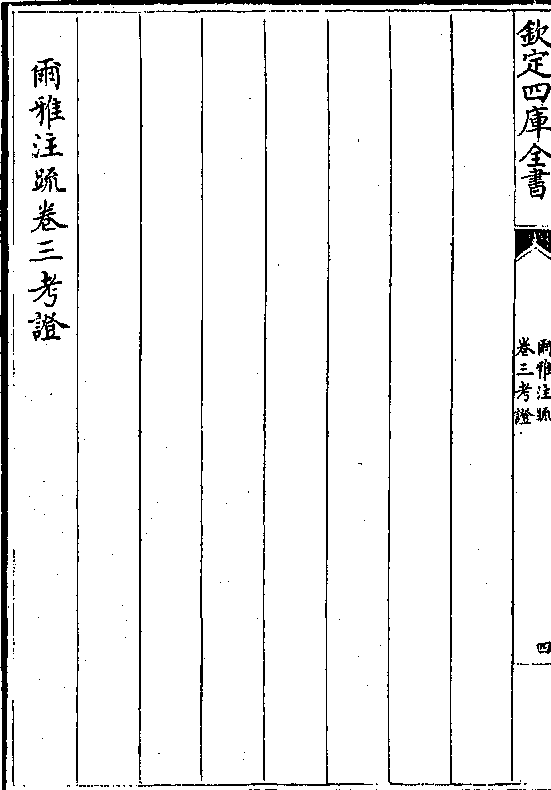 欽定四庫全書
爾雅注疏
卷三考證
四
爾雅注疏卷三考證